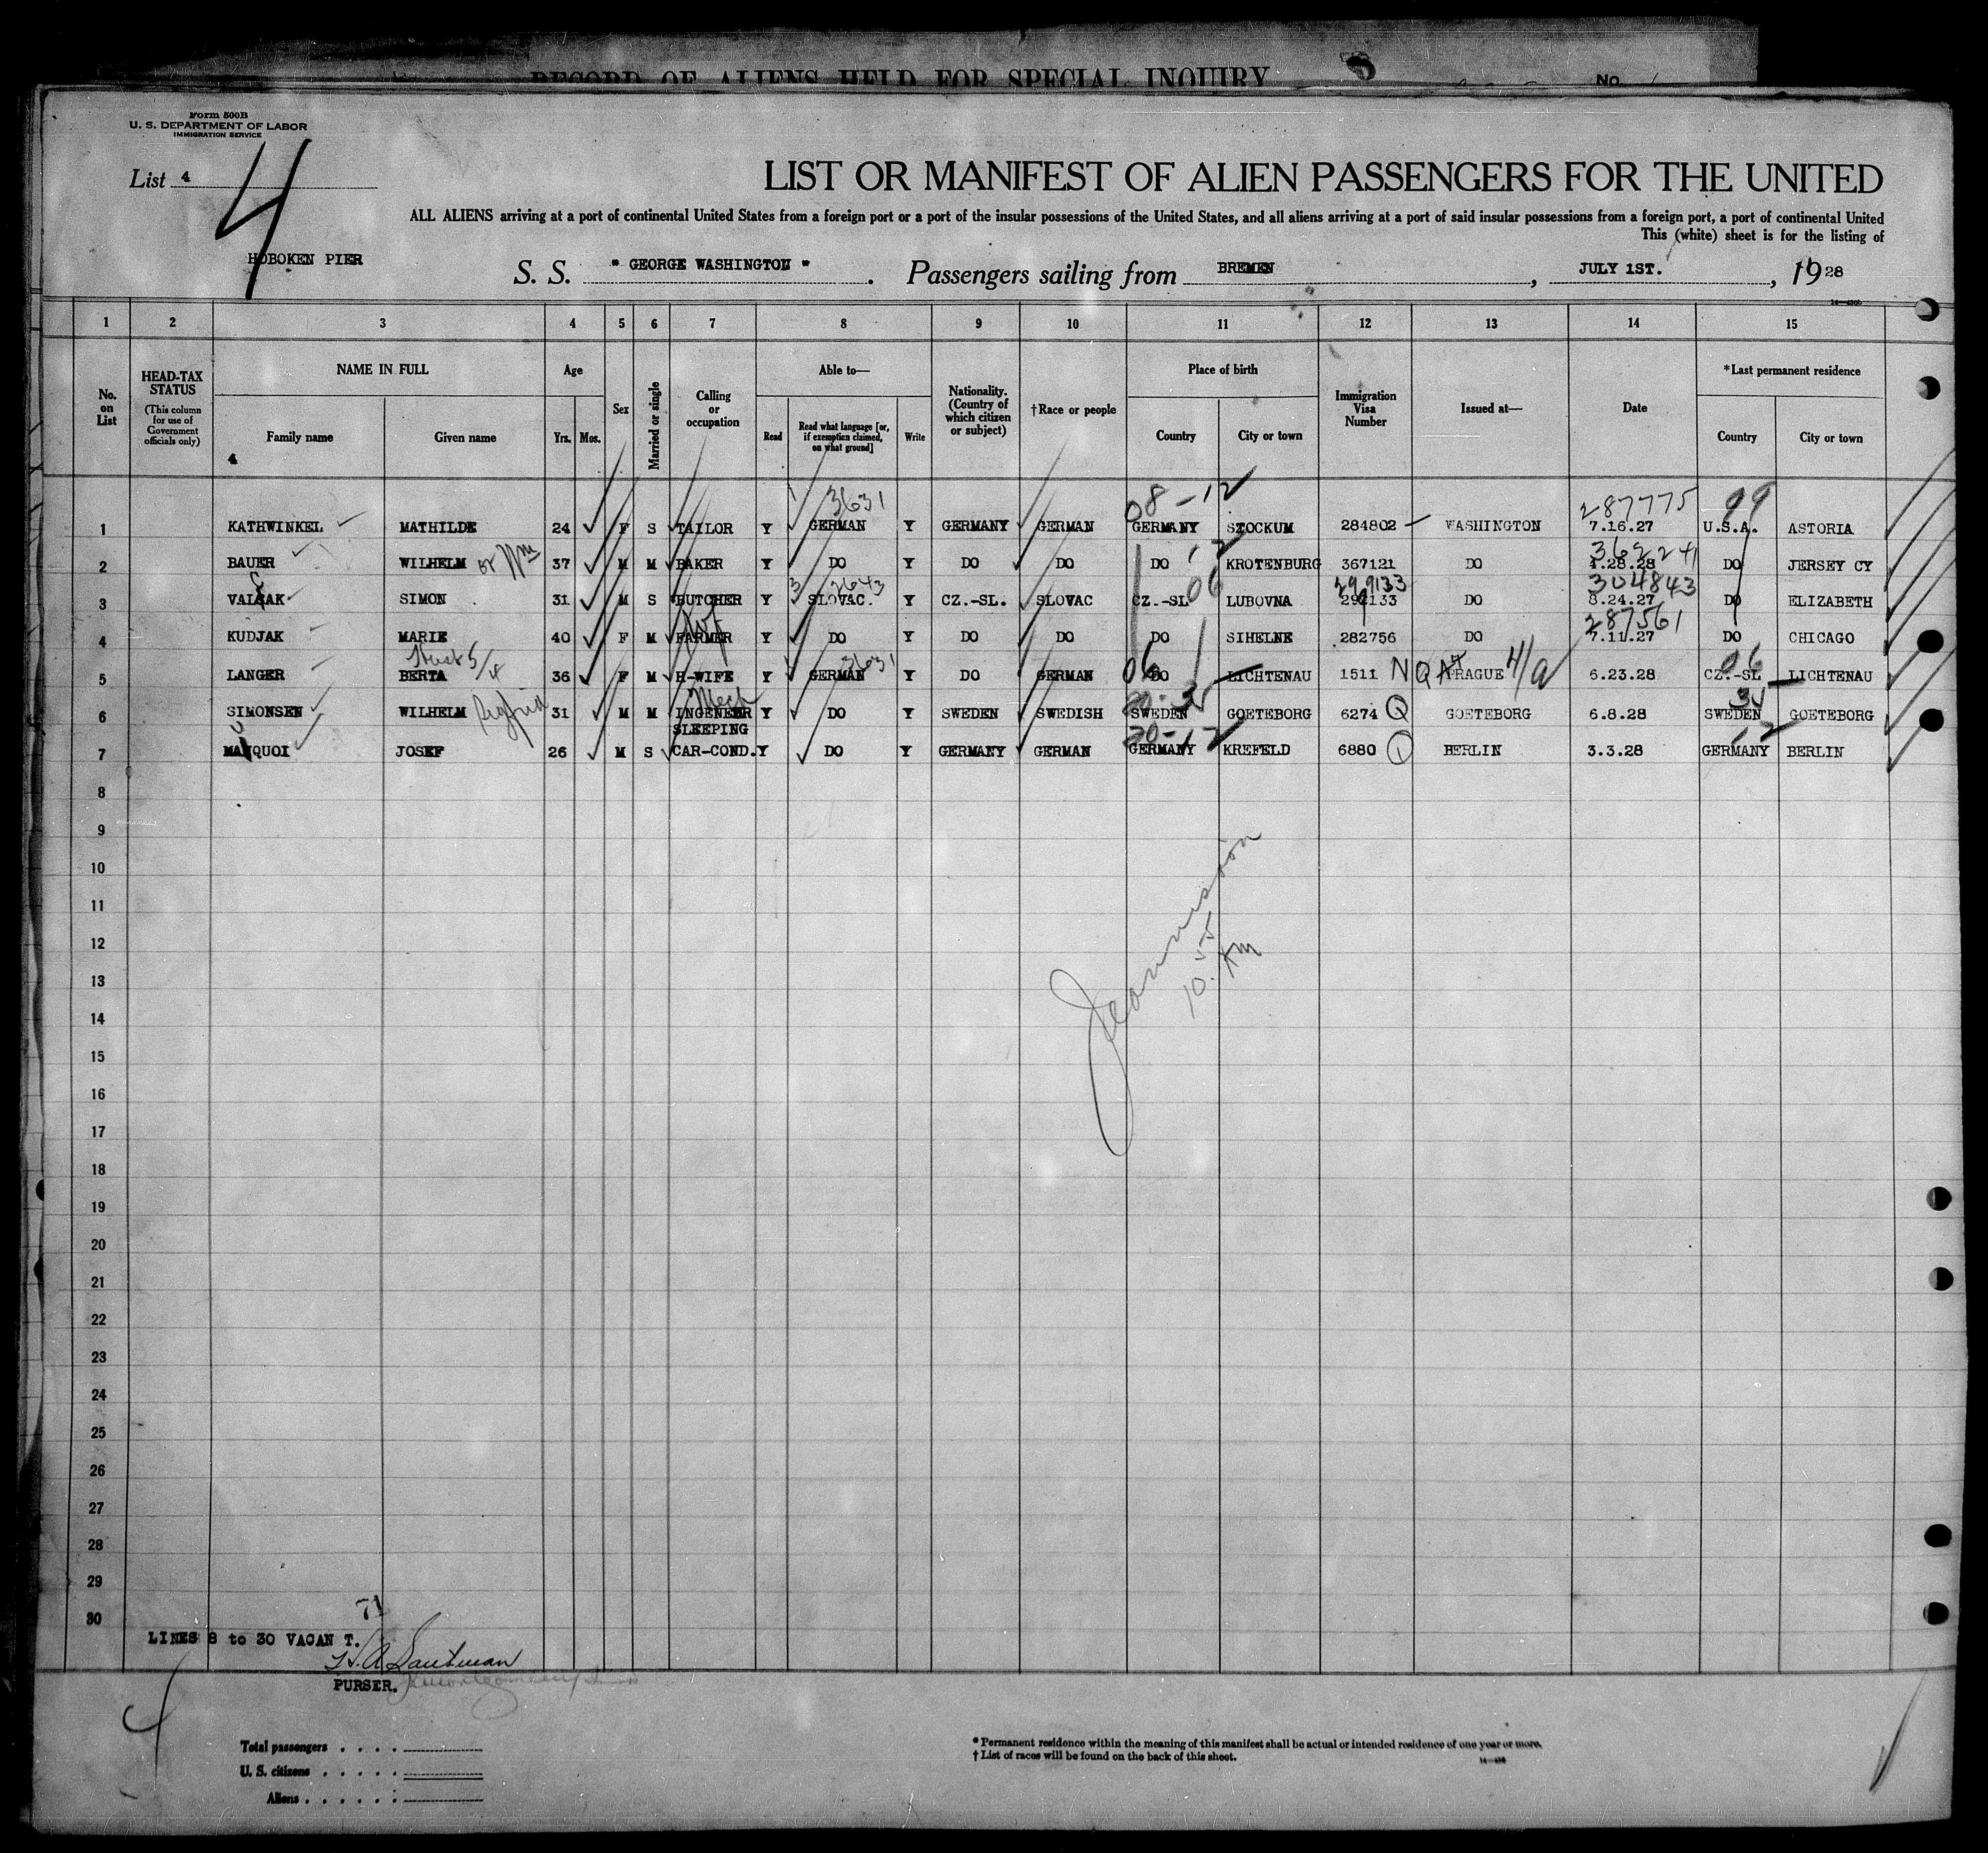 RECORD OF ALIENS HELD FOR SPECIAL INQUIRY No.
Form 500B
U. S. DEPARTMENT OF LABOR
IMMIGRATION SERVICE
List 4
4
LIST OR MANIFEST OF ALIEN PASSENGERS FOR THE UNITED
ALL ALIENS arriving at a port of continental United States from a foreign port or a port of the insular possessions of the United States, and all aliens arriving at a port of said insular possessions from a foreign port, a port of continental United
This (white) sheet is for the listing of
HOBOKEN PIER
S. S. " GEORGE WASHINGTON ". Passengers sailing from BREMEN, JULY 1ST., 1928
1 2 3 4 5 6 7 8 9 10 11 12 13 14 15
No. on List
HEAD-TAX STATUS (This column for use of Government officials only)
NAME IN FULL
Family name Given name
4
Age
Yrs. Mos.
Sex
Married or single
Calling or occupation
Able to—
Read Read what language [or, if exemption claimed, on what ground] Write
Nationality. (Country of which citizen or subject)
†Race or people
Place of birth
Country City or town
Immigration Visa Number
Issued at—
Date
*Last permanent residence
Country City or town
3631 08-12 287775 99
1 KATHWINKEL MATHILDE 24 F S TAILOR Y GERMAN Y GERMANY GERMAN GERMANY STOCKUM 284802 WASHINGTON 7.16.27 U.S.A. ASTORIA
362241
2 BAUER WILHELM or Wm 37 M M BAKER Y DO Y DO DO DO KROTENBURG 367121 DO 4.28.28 DO JERSEY CY
2643 06 299133 304843
3 VALSAK SIMON 31 M S BUTCHER Y SLOVAC. Y CZ.-SL. SLOVAC CZ.-SL LUBOVNA 292133 DO 8.24.27 DO ELIZABETH
287561
4 KUDJAK MARIE 40 F M FARMER Y DO Y DO DO DO SIHELNE 282756 DO 7.11.27 DO CHICAGO
3631 06 06
5 LANGER BERTA 36 F M H-WIFE Y GERMAN Y DO GERMAN DO LICHTENAU 1511 NQA PRAGUE 6.23.28 CZ.-SL LICHTENAU
Mech
6 SIMONSEN WILHELM Sigfrid 31 M M INGENEER Y DO Y SWEDEN SWEDISH SWEDEN GOETEBORG 6274 GOETEBORG 6.8.28 SWEDEN GOETEBORG
SLEEPING
7 MANQUOI JOSEF 26 M S CAR-COND. Y DO Y GERMANY GERMAN GERMANY KREFELD 6880 1 BERLIN 3.3.28 GERMANY BERLIN
8
9
10
11
12
13
14
15
16
17
18
19
20
21
22
23
24
25
26
27
28
29
30
10.55 AM
71
LINES 8 to 30 VACAN T.
PURSER.
Total passengers
U. S. citizens
Aliens
* Permanent residence within the meaning of this manifest shall be actual or intended residence of one year or more.
† List of races will be found on the back of this sheet.